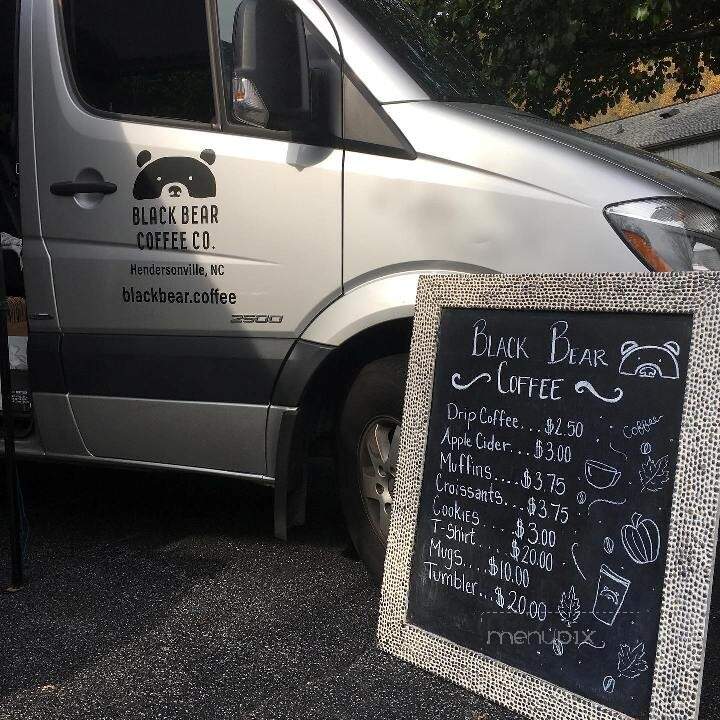 BLACK BEAR
COFFEE CO.
Hendersonville, NC
blackbear.coffee
2500
BLACK BEAR
COFFEE
Drip Coffee...$2.50
Apple Cider...$3.00
Muffins....$3.75
Croissants...$3.75
Cookies....$3.00
T-Shirt....$20.00
Mugs....$10.00
Tumbler...$20.00
menupix